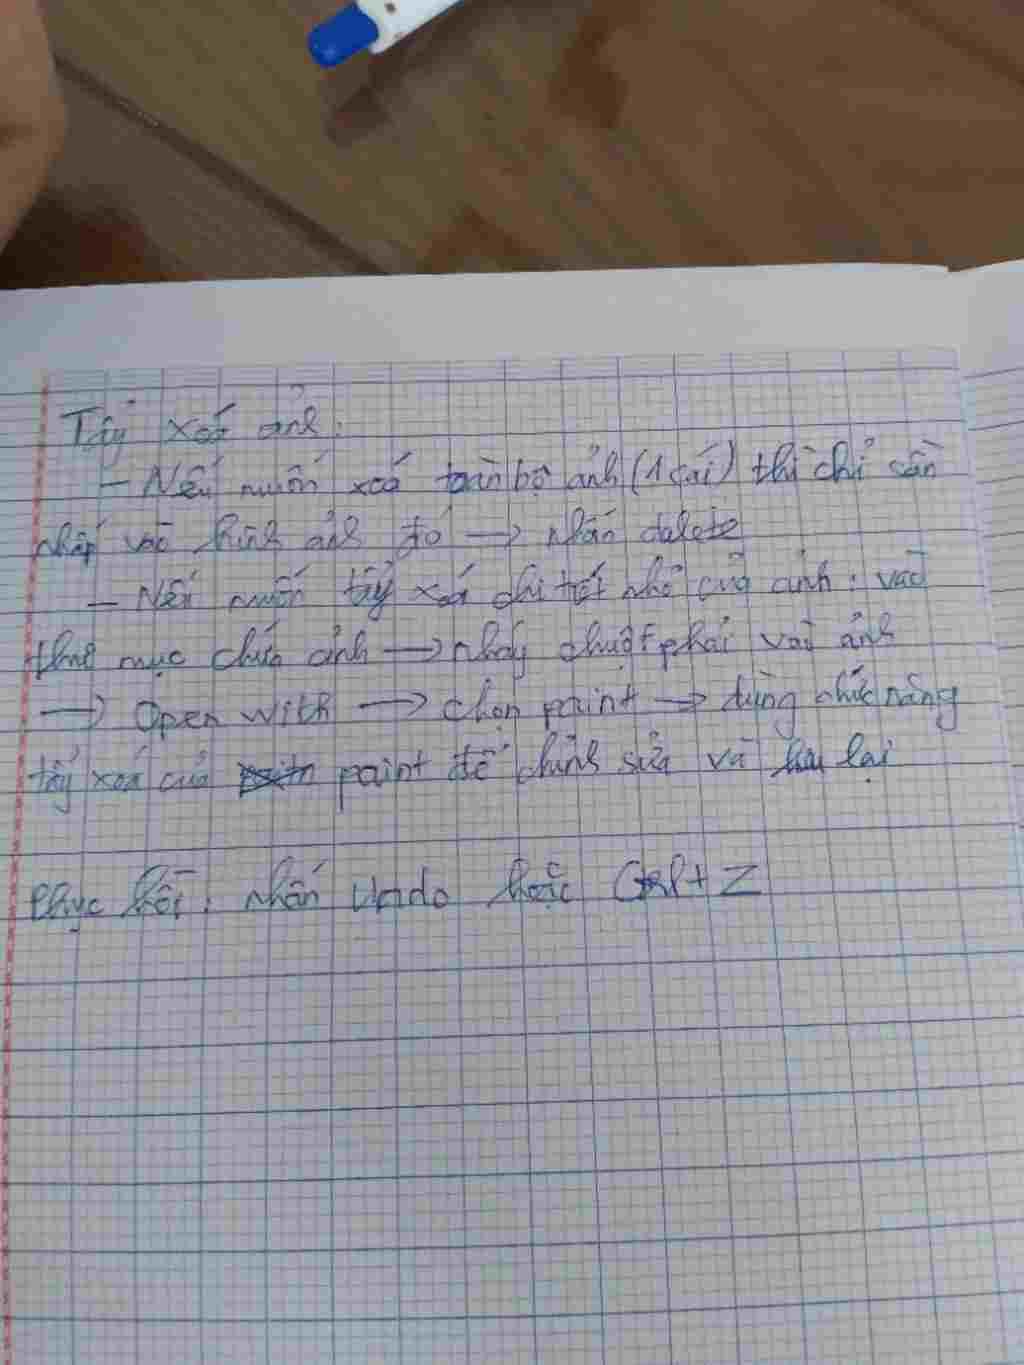 Tẩy xoá ảnh:
- Nếu muốn xoá toàn bộ ảnh (1 cái) thì chỉ cần
nhấp vào hình ảnh đó → nhấn delete
- Nếu muốn tẩy xoá chi tiết nhỏ của ảnh: vào
thư mục chứa ảnh → nháy chuột phải vào ảnh
→ Open with → chọn paint → dùng chức năng
tẩy xoá của paint để chỉnh sửa và lưu lại
Phục hồi: nhấn Undo hoặc Ctrl + Z